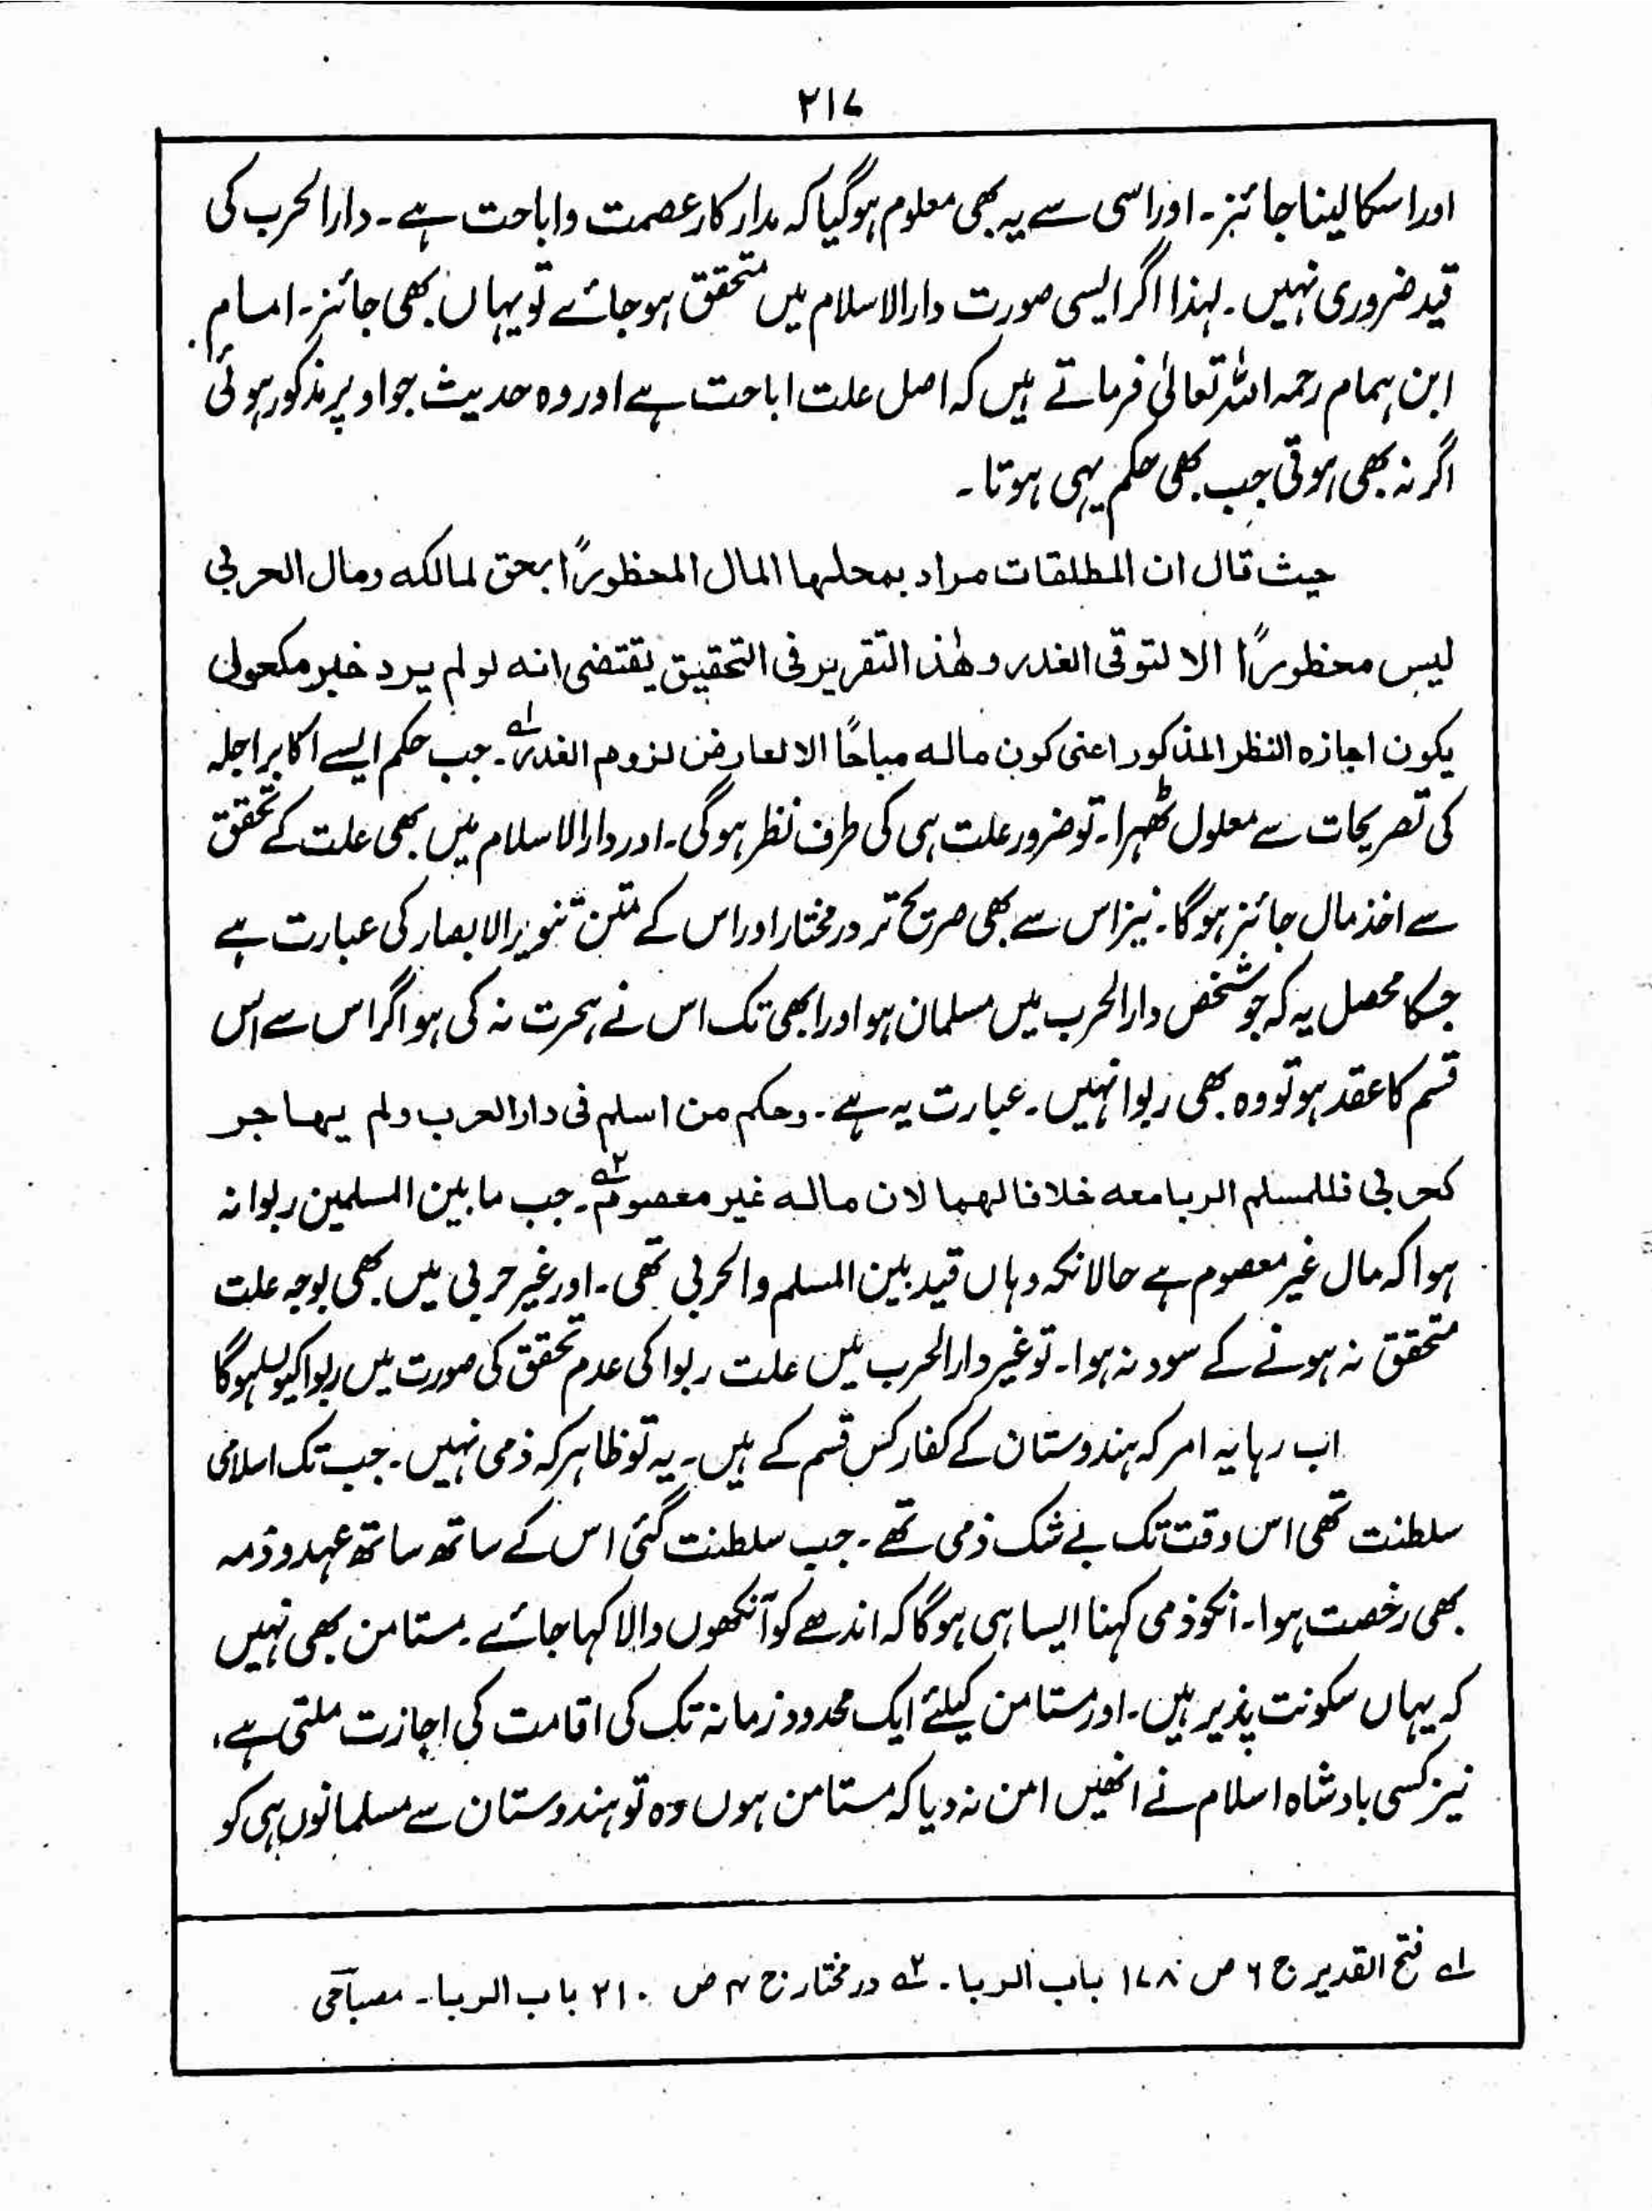 ۲۱۷
اور اسکا لینا جائز۔ اور اسی سے یہ بھی معلوم ہو گیا کہ مدار کار عصمت و اباحت ہے۔ دارالحرب کی
قید ضروری نہیں۔ لہذا اگر ایسی صورت دارالاسلام میں متحقق ہو جائے تو یہاں بھی جائز۔ امام
ابن ہمام رحمہ اللہ تعالیٰ فرماتے ہیں کہ اصل علت اباحت ہے اور وہ حدیث جو اوپر مذکور ہوئی
اگر نہ بھی ہوتی جب بھی حکم یہی ہوتا۔
حیث قال ان المطلقات مراد بمحلہا المال المحظورًا بحق لمالکہ ومال الحربی
لیس محظورًا الا لتوقی الغدر وھٰذ التقریر فی التحقیق یقتضی انہ لو لم یرد خبر مکحول
یکون اجازہ النظر المذکور اعنی کون مالہ مباحًا الا لعارض لزوم الغدر۱؎۔ جب حکم ایسے اکابر اجلہ
کی تصریحات سے معلول ٹھہرا۔ تو ضرور علت ہی کی طرف نظر ہوگی۔ اور دارالاسلام میں بھی علت کے تحقق
سے اخذ مال جائز ہوگا۔ نیز اس سے بھی صریح تر درمختار اور اس کے متن تنویر الابصار کی عبارت ہے
جسکا محصل یہ کہ جو شخص دارالحرب میں مسلمان ہو اور ابھی تک اس نے ہجرت نہ کی ہو اگر اس سے اس
قسم کا عقد ہو تو وہ بھی ربوا نہیں۔ عبارت یہ ہے۔ وحکم من اسلم فی دارالحرب ولم یہاجر
کحربی فللمسلم الربا معہ خلافا لھما لان مالہ غیر معصوم۲؎۔ جب ما بین المسلمین ربوا نہ
ہوا کہ مال غیر معصوم ہے حالانکہ وہاں قید بین المسلم والحربی تھی۔ اور غیر حربی میں بھی بوجہ علت
متحقق نہ ہونے کے سود نہ ہوا۔ تو غیر دارالحرب میں علت ربوا کی عدم تحقق کی صورت میں ربوا کیوں ہوگا
اب رہا یہ امر کہ ہندوستان کے کفار کس قسم کے ہیں۔ یہ تو ظاہر کہ ذمی نہیں۔ جب تک اسلامی
سلطنت تھی اس وقت تک بے شک ذمی تھے۔ جب سلطنت گئی اس کے ساتھ ساتھ عہد و ذمہ
بھی رخصت ہوا۔ انکو ذمی کہنا ایسا ہی ہوگا کہ اندھے کو آنکھوں والا کہا جائے۔ مستامن بھی نہیں
کہ یہاں سکونت پذیر ہیں۔ اور مستامن کیلئے ایک محدود زمانہ تک کی اقامت کی اجازت ملتی ہے،
نیز کسی بادشاہ اسلام نے انھیں امن نہ دیا کہ مستامن ہوں وہ تو ہندوستان سے مسلمانوں ہی کو
۱؎ فتح القدیر ج ۶ ص ۱۷۸ باب الربا۔ ۲؎ درمختار ج ۴ ص ۲۱۰ باب الربا۔ مصباحی